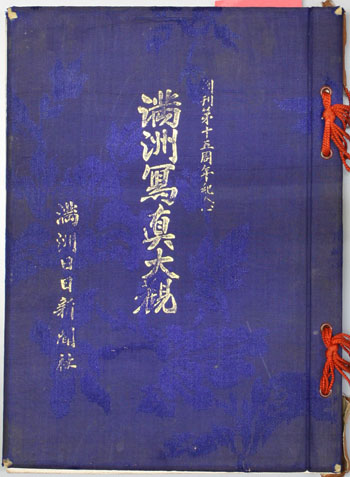 創刊第十五周年紀念
満洲寫眞大観
満洲日日新聞社